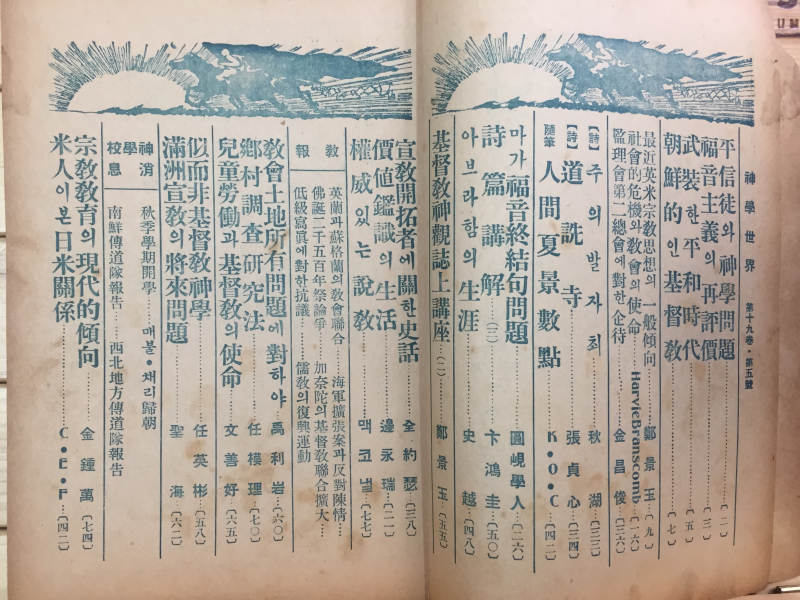 神學世界 第十九卷·第五號
平信徒와神學問題……………〔一〕
福音主義의再評價……………〔三〕
武裝한平和時代……………〔五〕
朝鮮的인基督敎……………〔七〕
最近英米宗敎思想의一般傾向……鄭景玉…〔九〕
社會的危機와敎會의使命……HarvieBranscomb…〔一六〕
監理會第二總會에對한企待……金昌俊…〔二六〕
【詩】주의발자최……秋湖…〔三三〕
【詩】道詵寺……張貞心…〔三四〕
隨筆 人間夏景數點……K·O·C…〔四二〕
마가福音終結句問題……圓峴學人…〔二六〕
詩篇講解(二)……卞鴻圭…〔五〇〕
아브라함의生涯……史越…〔四八〕
基督敎神觀誌上講座(二)……鄭景玉…〔五五〕
宣敎開拓者에關한史話……全約瑟…〔三八〕
價値鑑識의生活……邊永瑞…〔二一〕
權威있는說敎……맥코낼…〔七七〕
敎報
英蘭과蘇格蘭의敎會聯合……海軍擴張案과反對陳情……
佛誕二千五百年祭論爭……加奈陀의基督敎聯合擴大……
低級寫眞에對한抗議……儒敎의復興運動
敎會土地所有問題에對하야……禹利岩…〔六〇〕
鄕村調査硏究法……任模理…〔七〇〕
兒童勞働과基督敎의使命……文善好…〔六五〕
似而非基督敎神學……任英彬…〔五八〕
滿洲宣敎의將來問題……聖海…〔六二〕
神學校消息
秋季學期開學……매불·채리歸朝
南鮮傳道隊報告……西北地方傳道隊報告
宗敎敎育의現代的傾向……金鍾萬…〔七四〕
米人이본日米關係……C·E·F…〔四二〕
UM